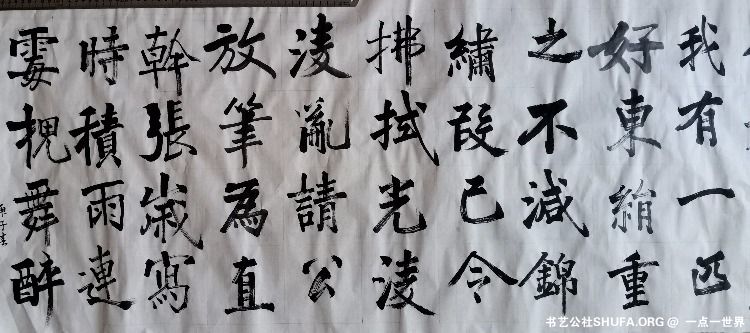 我有一匹
好東絹重
之不減錦
繡段已令
拂拭光淩
淩亂請公
放筆為直
幹張歲寫
時積雨連
舞醉
庚子春
书艺公社SHUFA.ORG @ 一点一世界